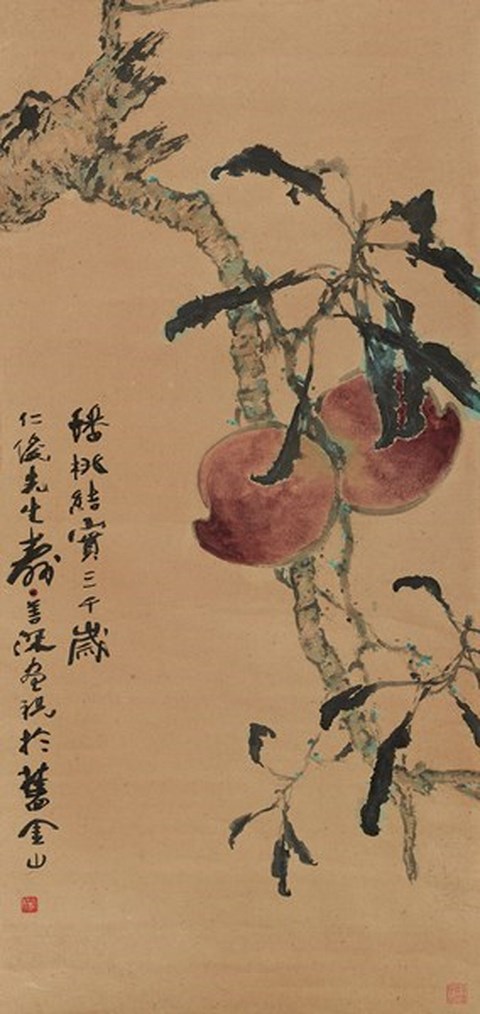 蟠桃結實三千歲
仁俊先生壽善深画祝於舊金山